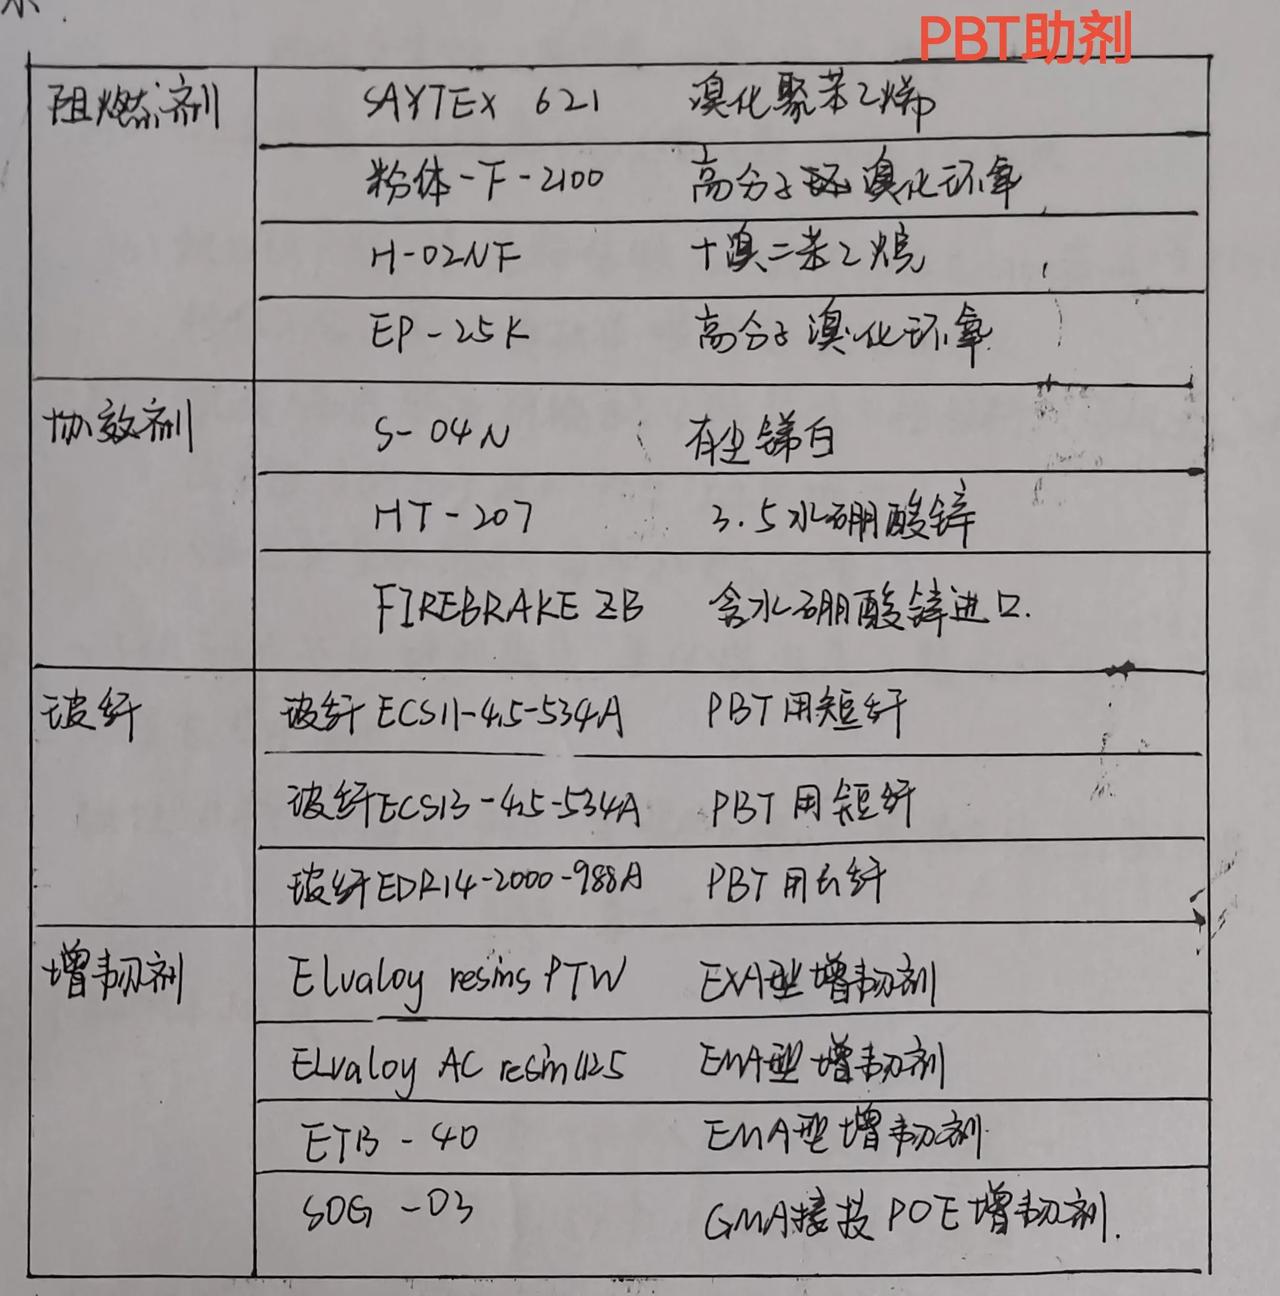 PBT助剂
阻燃剂 SAYTEX 621 溴化聚苯乙烯
粉体-F-2100 高分子溴化环氧
H-02NF 十溴二苯乙烷
EP-25K 高分子溴化环氧
协效剂 S-04N 有尘锑白
HT-207 3.5水硼酸锌
FIREBRAKE ZB 含水硼酸锌进口.
玻纤 玻纤ECS11-4.5-534A PBT用短纤
玻纤ECS13-4.5-534A PBT用短纤
玻纤EDR14-2000-988A PBT用长纤
增韧剂 Elvaloy resins PTW 型增韧剂
ELvaloy AC resin1125 EMA型增韧剂
ETB-40 EMA型增韧剂.
SOG-03 GMA接技POE增韧剂.